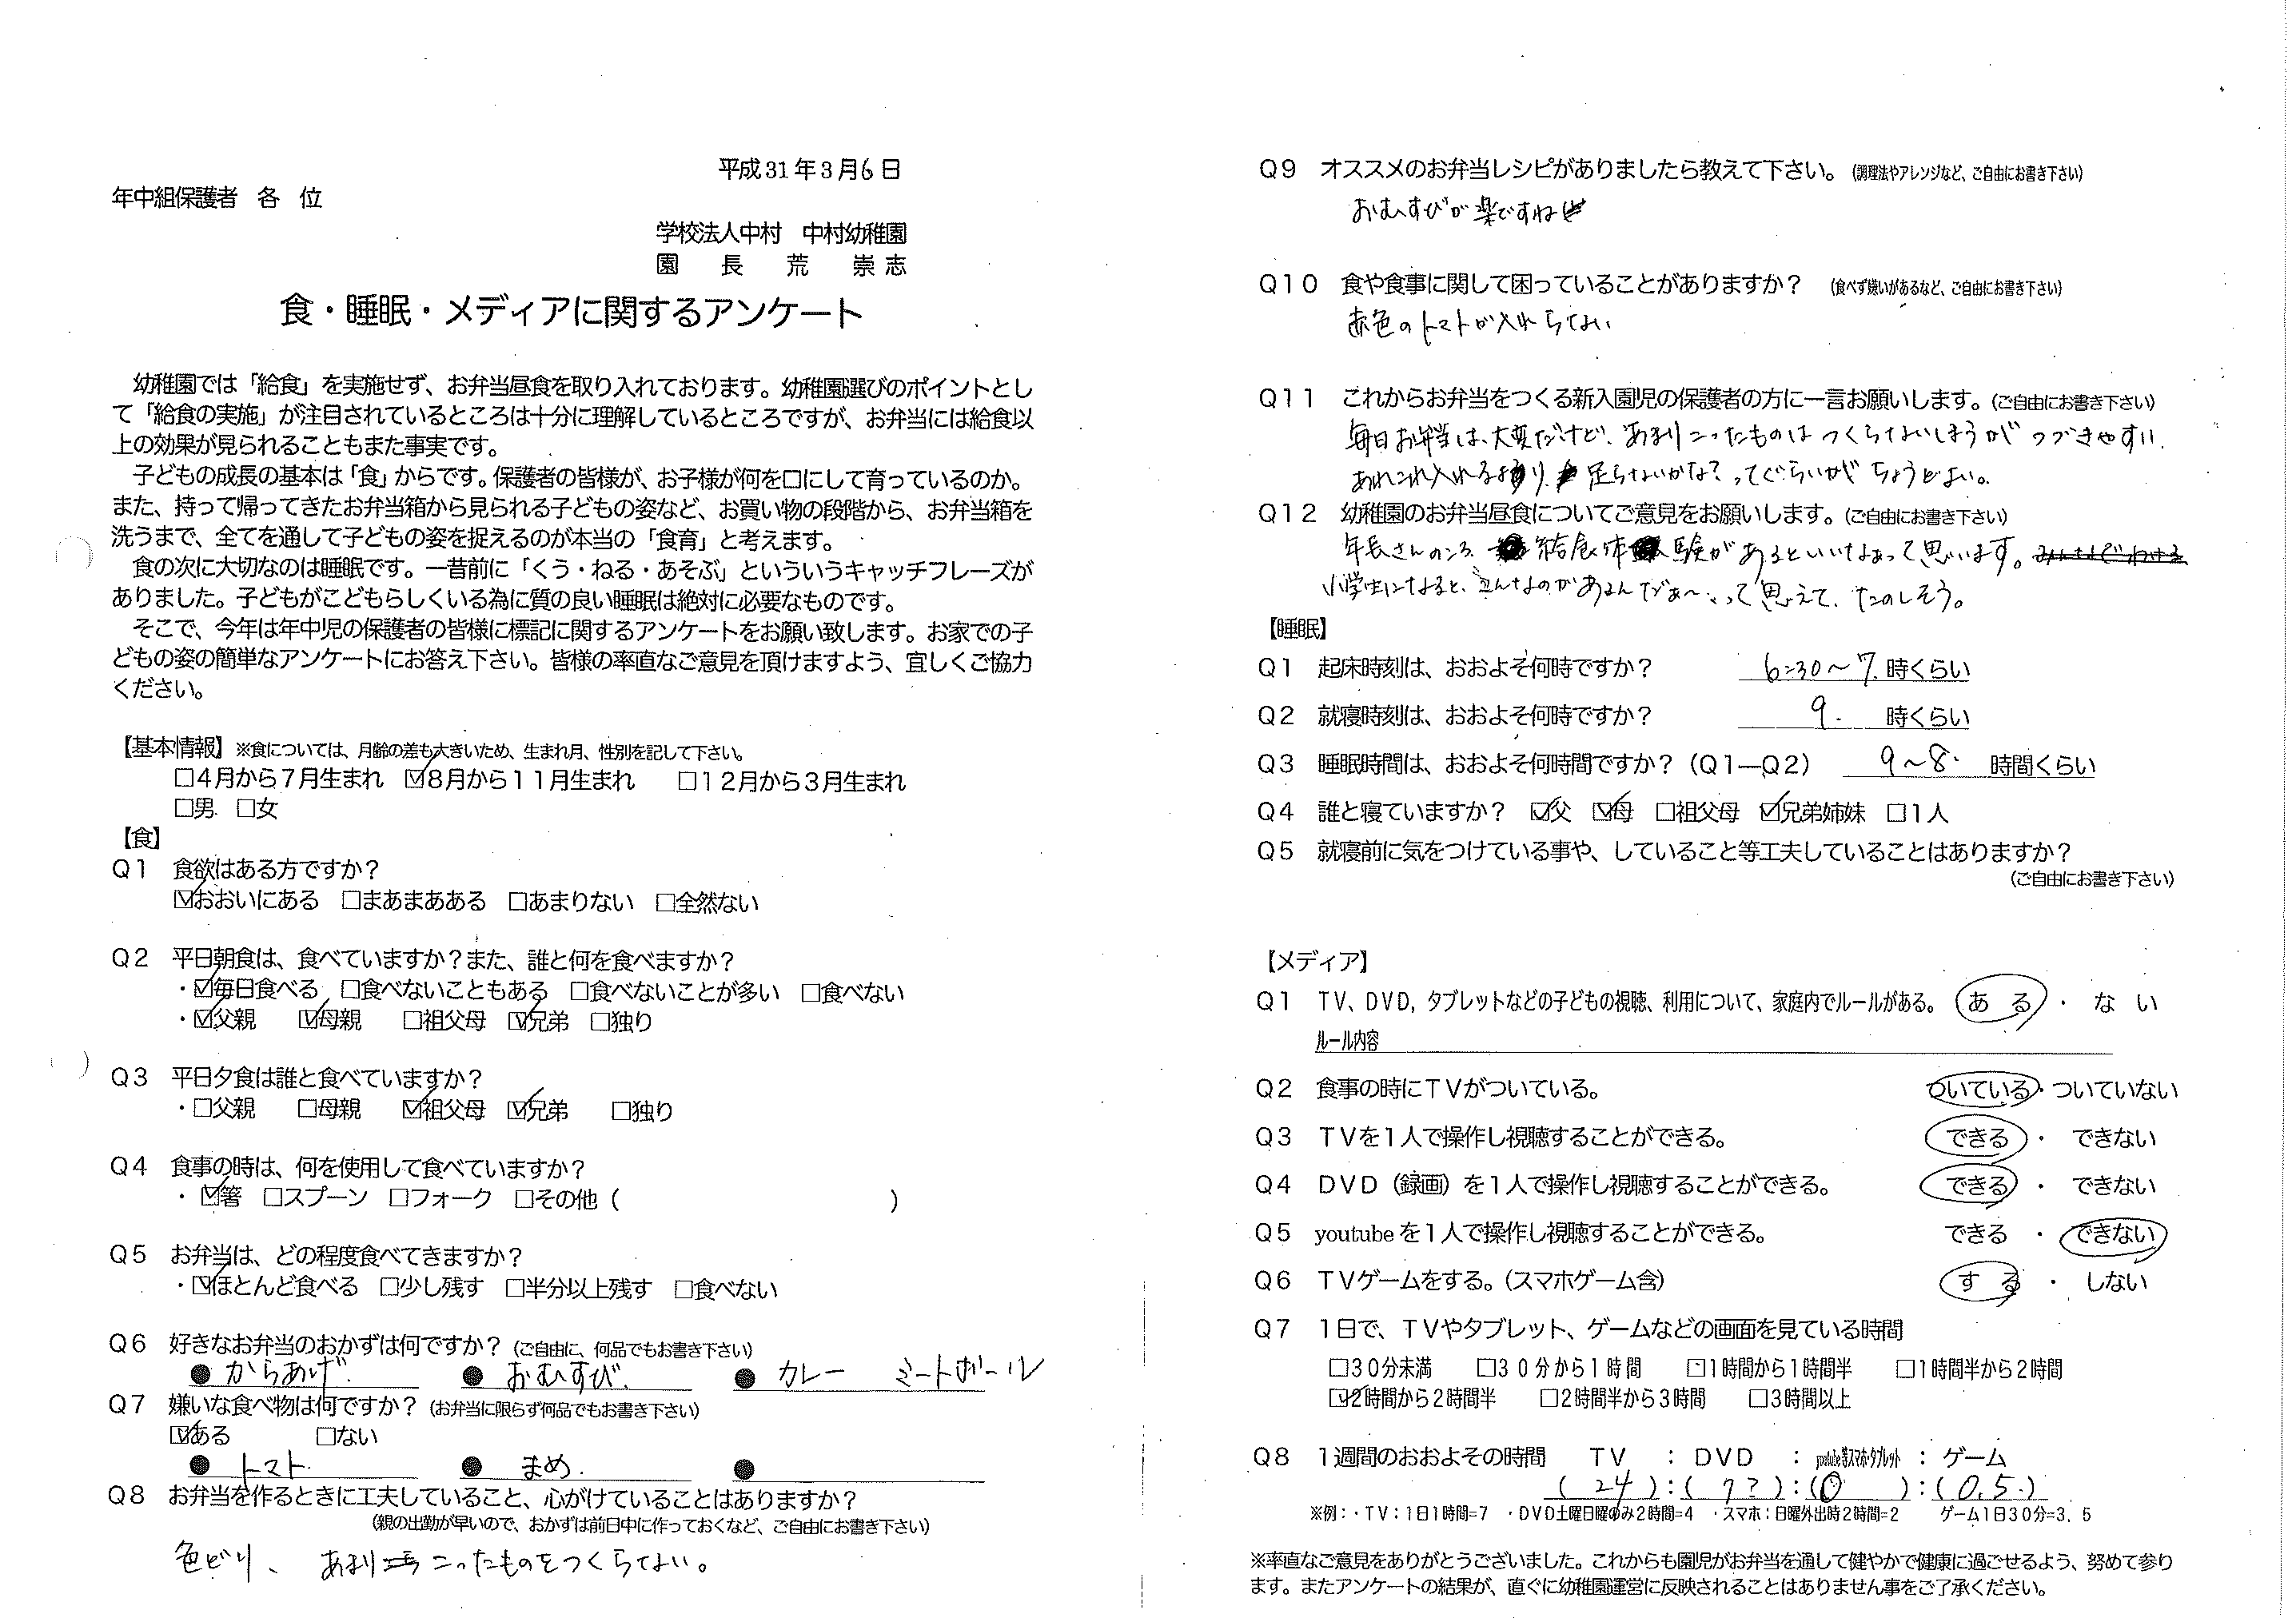 平成31年3月6日
年中組保護者 各 位
学校法人中村 中村幼稚園
園 長 荒 崇志
食・睡眠・メディアに関するアンケート
幼稚園では「給食」を実施せず、お弁当昼食を取り入れております。幼稚園選びのポイントとし
て「給食の実施」が注目されているところは十分に理解しているところですが、お弁当には給食以
上の効果が見られることもまた事実です。
子どもの成長の基本は「食」からです。保護者の皆様が、お子様が何を口にして育っているのか。
また、持って帰ってきたお弁当箱から見られる子どもの姿など、お買い物の段階から、お弁当箱を
洗うまで、全てを通して子どもの姿を捉えるのが本当の「食育」と考えます。
食の次に大切なのは睡眠です。一昔前に「くう・ねる・あそぶ」といういうキャッチフレーズが
ありました。子どもがこどもらしくいる為に質の良い睡眠は絶対に必要なものです。
そこで、今年は年中児の保護者の皆様に標記に関するアンケートをお願い致します。お家での子
どもの姿の簡単なアンケートにお答え下さい。皆様の率直なご意見を頂けますよう、宜しくご協力
ください。
【基本情報】※食については、月齢の差も大きいため、生まれ月、性別を記して下さい。
□4月から7月生まれ ☑8月から11月生まれ □12月から3月生まれ
□男 □女
【食】
Q1 食欲はある方ですか?
☑おおいにある □まあまあある □あまりない □全然ない
Q2 平日朝食は、食べていますか?また、誰と何を食べますか?
・☑毎日食べる □食べないこともある □食べないことが多い □食べない
・☑父親 ☑母親 □祖父母 ☑兄弟 □独り
Q3 平日夕食は誰と食べていますか?
・□父親 □母親 ☑祖父母 ☑兄弟 □独り
Q4 食事の時は、何を使用して食べていますか?
・☑箸 □スプーン □フォーク □その他( )
Q5 お弁当は、どの程度食べてきますか?
・☑ほとんど食べる □少し残す □半分以上残す □食べない
Q6 好きなお弁当のおかずは何ですか?(ご自由に、何品でもお書き下さい)
● からあげ. ● おむすび. ● カレー ミートボール
Q7 嫌いな食べ物は何ですか?(お弁当に限らず何品でもお書き下さい)
☑ある □ない
● トマト. ● まめ. ●
Q8 お弁当を作るときに工夫していること、心がけていることはありますか?
(親の出勤が早いので、おかずは前日中に作っておくなど、ご自由にお書き下さい)
色どり、 あまり こったものをつくらない。
Q9 オススメのお弁当レシピがありましたら教えて下さい。(調理法やアレンジなど、ご自由にお書き下さい)
おむすびが楽ですね
Q10 食や食事に関して困っていることがありますか? (食べず嫌いがあるなど、ご自由にお書き下さい)
赤色のトマトが入れらない
Q11 これからお弁当をつくる新入園児の保護者の方に一言お願いします。(ご自由にお書き下さい)
毎日お弁当は、大変だけど、あまりこったものはつくらないほうがつづきやすい.
あれこれ入れるより、足らないかな?ってぐらいがちょうどよい。
Q12 幼稚園のお弁当昼食についてご意見をお願いします。(ご自由にお書き下さい)
年長さんのころ 給食体験があるといいなぁって思います。
小学生になると、こんなのがあるんだぁ〜って思えて、たのしそう。
【睡眠】
Q1 起床時刻は、おおよそ何時ですか? 6:30〜7.時くらい
Q2 就寝時刻は、おおよそ何時ですか? 9. 時くらい
Q3 睡眠時間は、おおよそ何時間ですか?(Q1―Q2) 9〜8. 時間くらい
Q4 誰と寝ていますか? ☑父 ☑母 □祖父母 ☑兄弟姉妹 □1人
Q5 就寝前に気をつけている事や、していること等工夫していることはありますか?
(ご自由にお書き下さい)
【メディア】
Q1 TV、DVD,タブレットなどの子どもの視聴、利用について、家庭内でルールがある。 ある ・ ない
ルール内容
Q2 食事の時にTVがついている。 ついている・ついていない
Q3 TVを1人で操作し視聴することができる。 できる ・ できない
Q4 DVD(録画)を1人で操作し視聴することができる。 できる ・ できない
Q5 youtubeを1人で操作し視聴することができる。 できる ・ できない
Q6 TVゲームをする。(スマホゲーム含) する ・ しない
Q7 1日で、TVやタブレット、ゲームなどの画面を見ている時間
□30分未満 □30分から1時間 □1時間から1時間半 □1時間半から2時間
☑2時間から2時間半 □2時間半から3時間 □3時間以上
Q8 1週間のおおよその時間 TV :DVD :youtube等スマホ・タブレット:ゲーム
( 24 ):( 7? ):(0 ):(0.5.)
※例:・TV:1日1時間=7 ・DVD土曜日曜のみ2時間=4 ・スマホ:日曜外出時2時間=2 ゲーム1日30分=3.5
※率直なご意見をありがとうございました。これからも園児がお弁当を通して健やかで健康に過ごせるよう、努めて参り
ます。またアンケートの結果が、直ぐに幼稚園運営に反映されることはありません事をご了承ください。